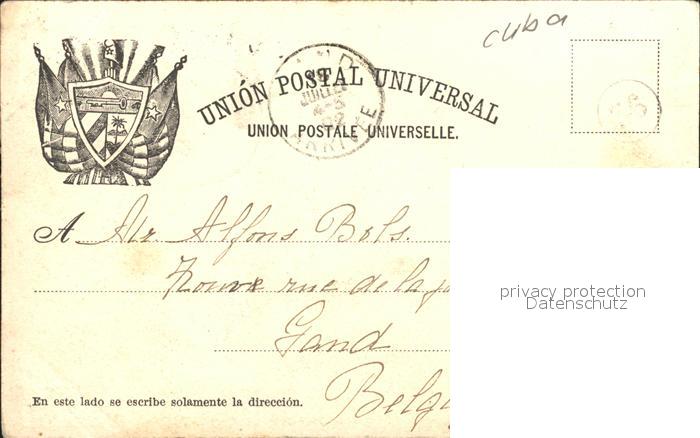 cuba
UNIÓN POSTAL UNIVERSAL
UNION POSTALE UNIVERSELLE.
JUILLET
4-5
ARRIVÉE
A Mr Alfons Bols.
rue de la
Gand
Belg
privacy protection
Datenschutz
En este lado se escribe solamente la dirección.